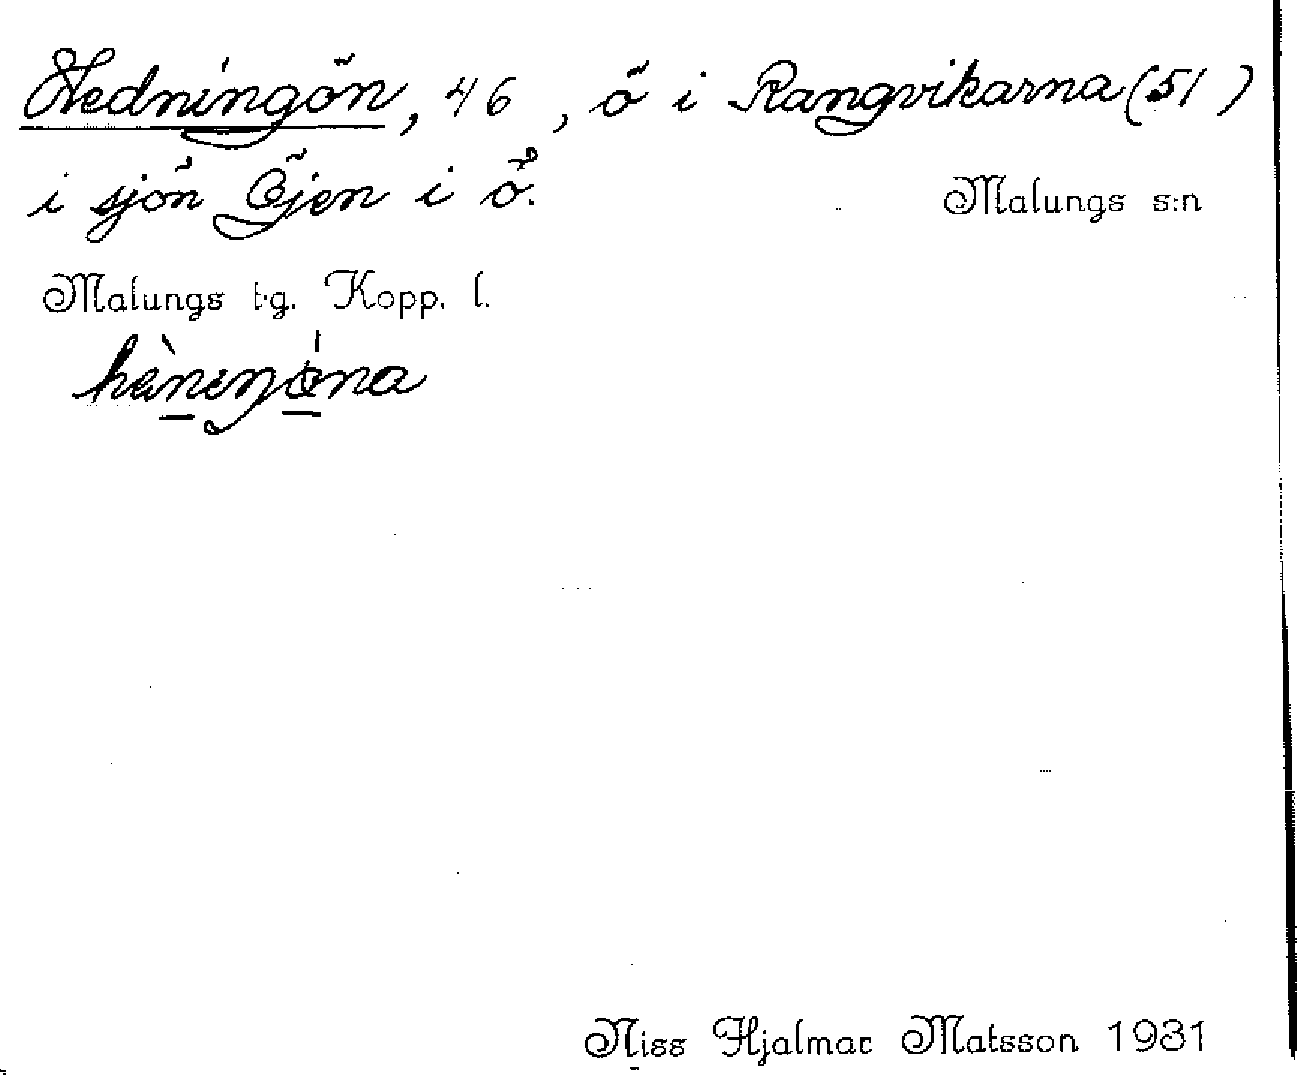 Hedningön, 46, ö i Rangvikarna (51)
i sjön Öjen i ö.
Malungs s:n
Malungs t.g. Kopp. l.
Niss Hjalmar Matsson 1931